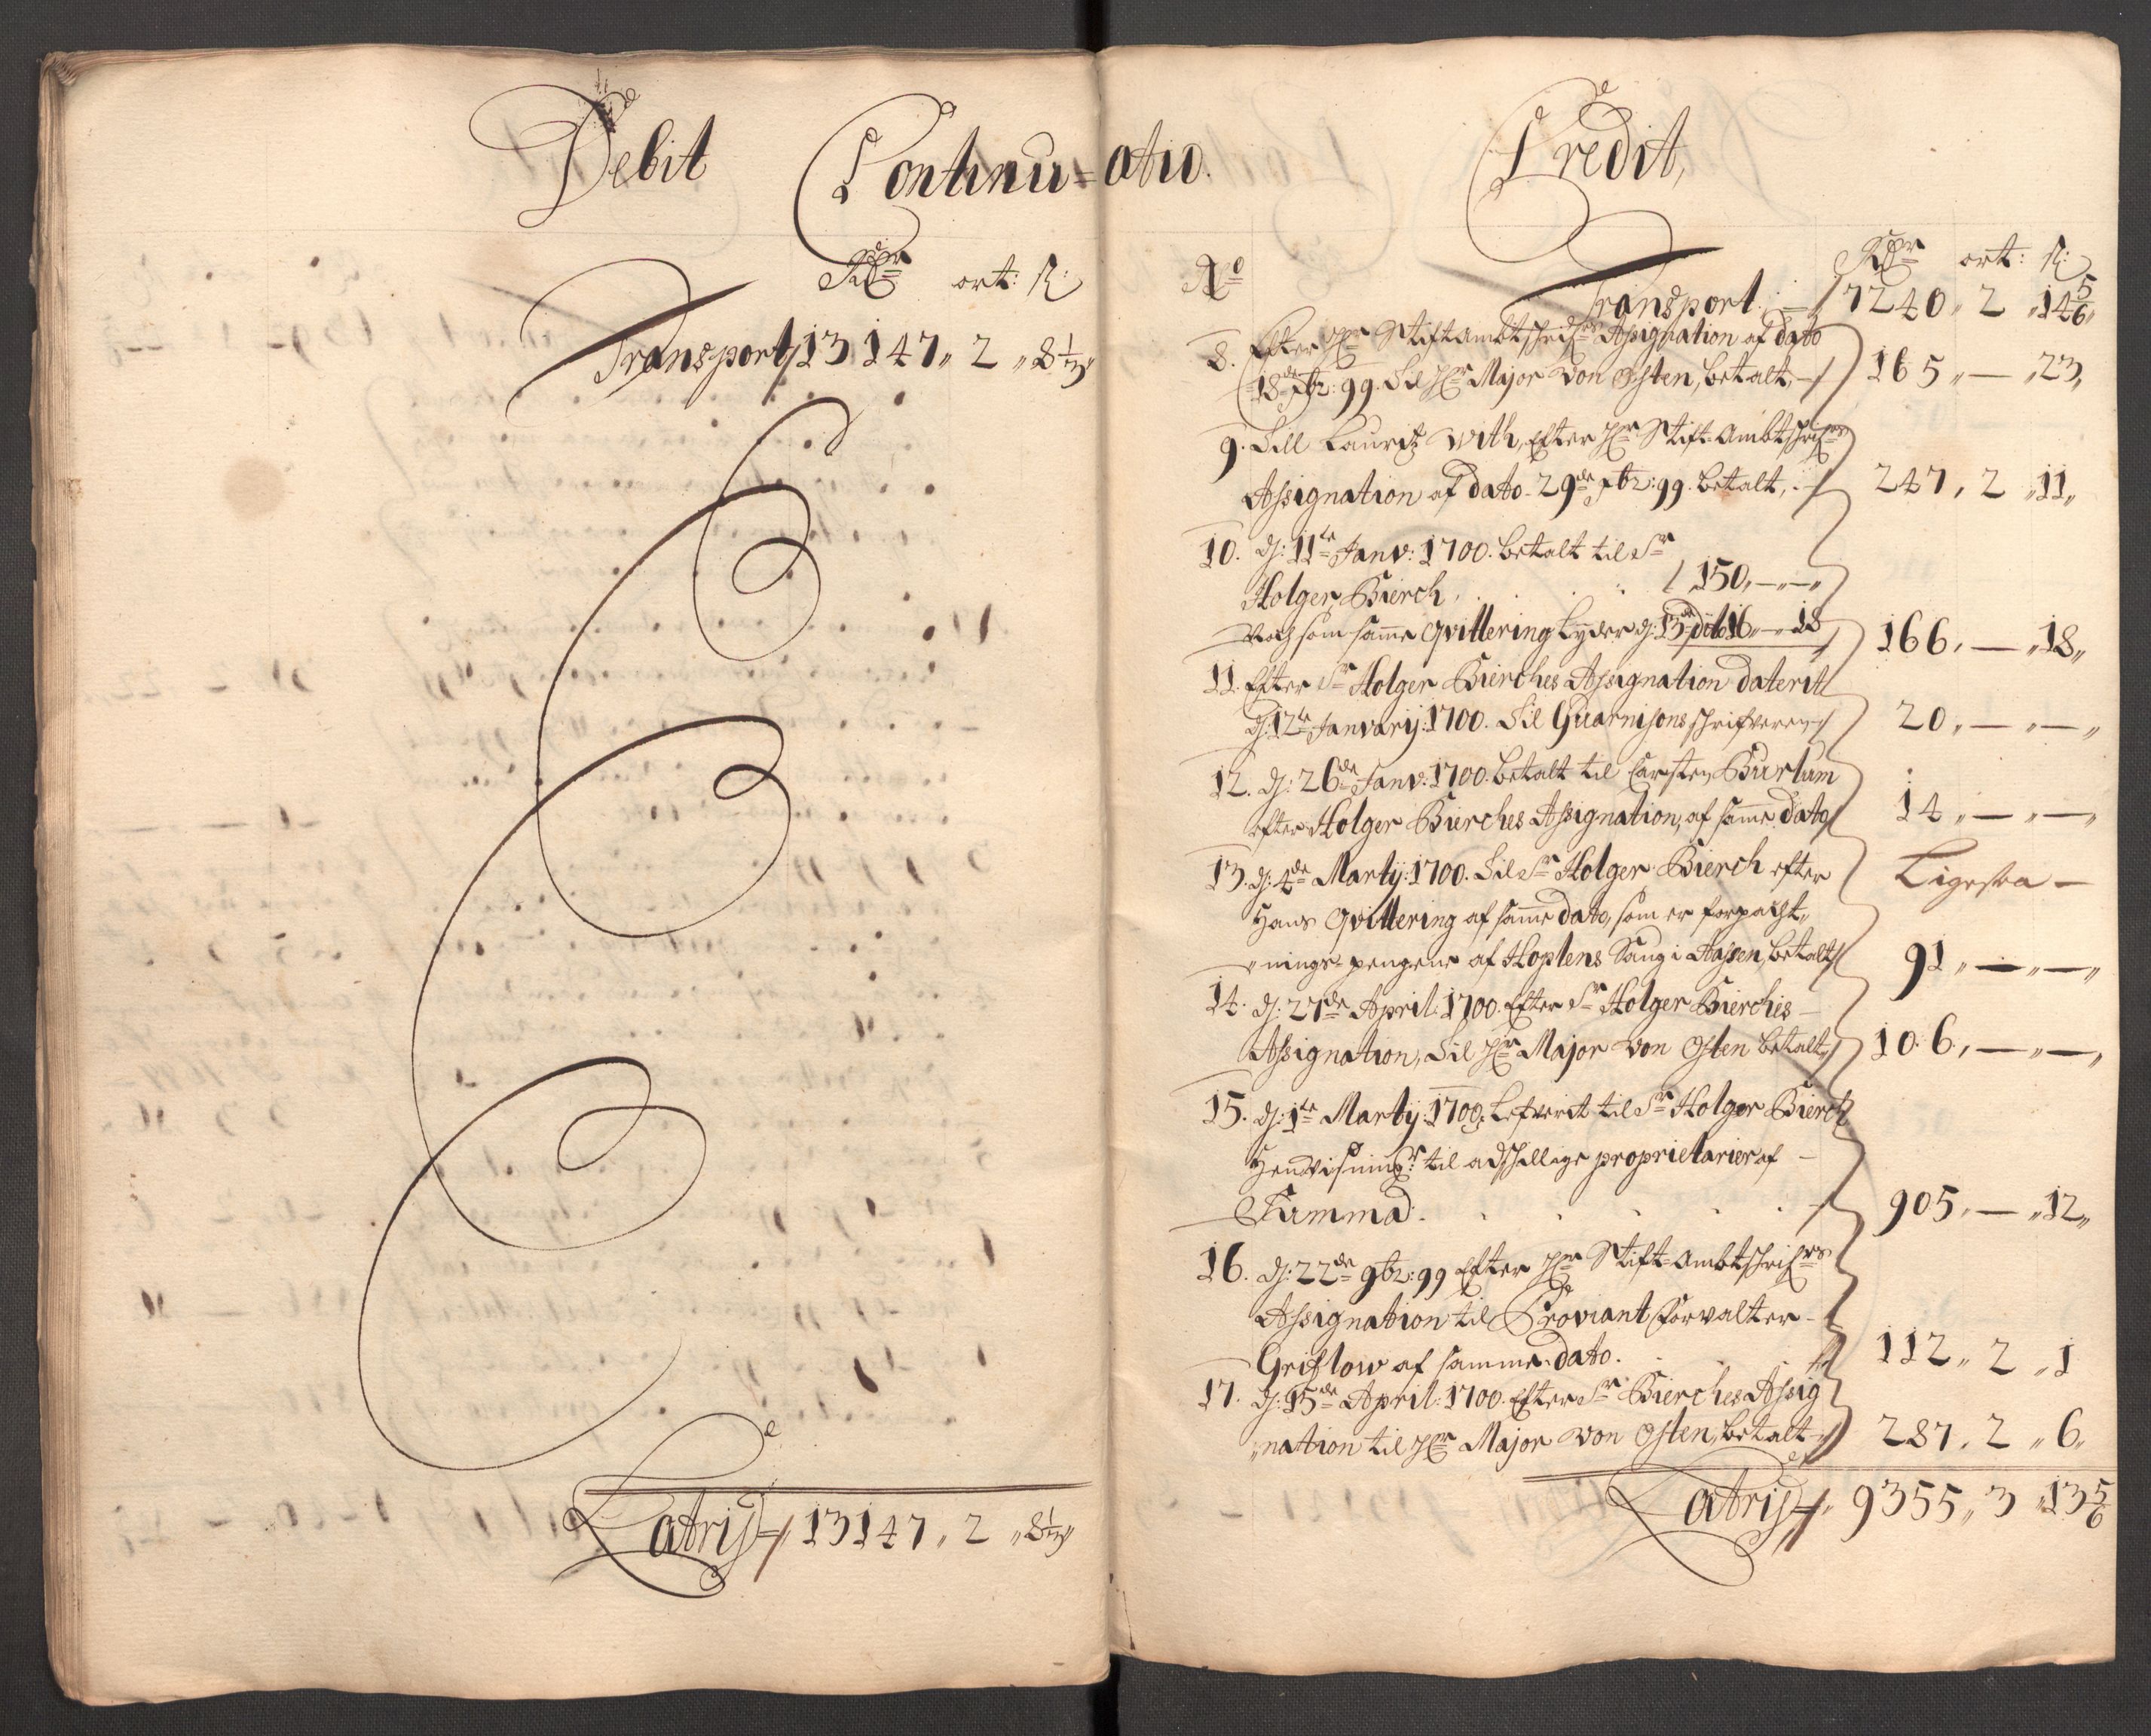 Debit Continu=
Rdr ort: ß:
Transport 13147,, 2 ,, 8 1/3,,
Latris 13147,, 2 ,, 8 1/3,,
atio. Credit,
No Rdr ort: ß:
Transport. 7240,, 2 ,, 14 5/6,,
8. Efter Hr Stiftambtschrifrs Assignation af dato
18de 7br: 99. Til Hr Major von Osten, betalt, 165,, — ,, 23,,
9. Till Lauritz With, Efter Hr Stift-Ambtschrifrs
Assignation af dato 29de 7br: 99. betalt, 247, 2 ,, 11,,
10. d: 11te Janv: 1700. betalt til Sr
Holger Bierch, 150,,—,,—,,
Noch som samme Qvittering Lyder d: 13de dito 16,,—,,18 166,, — ,, 18,,
11. Efter Sr Holger Bierches Assignation daterit
d: 12te Janvarij: 1700. Til Guarnisonsschrifveren 20,, — ,, — ,,
12. d: 26de Janv: 1700. betalt til Carsten Burlum
efter Holger Bierches Assignation, af samme dato 14,, — ,, — ,,
13. d: 4de Martij: 1700. Til Sr Holger Bierch efter Ligesaa —
Hans Qvittering af samme dato, som er forpacht,,
,,nings-pengene af Hoplens Saug i Aasen, betalt 91,, — ,, — ,,
14. d: 27de April: 1700. Efter Sr Holger Bierches
Assignation, Til Hr Major von Osten betalt 106,, — ,, — ,,
15. d: 1te Martij: 1700. Lefverit til Sr Holger Bierch
Henvisningr: til adschillige proprietarier af
Summa. 905,, — ,, 12,,
16. d: 22de 9br: 99 Efter Hr Stift-Ambtschrifrs
Assignation til Proviant Forvalter
Griflow af samme dato. 112,, 2 ,, 1
17. d: 15de April: 1700. Efter Sr Bierches Assig
,,nation til Hr Major von Osten, betalt 287,, 2 ,, 6,,
Latris 9355,, 3 ,, 13 5/6